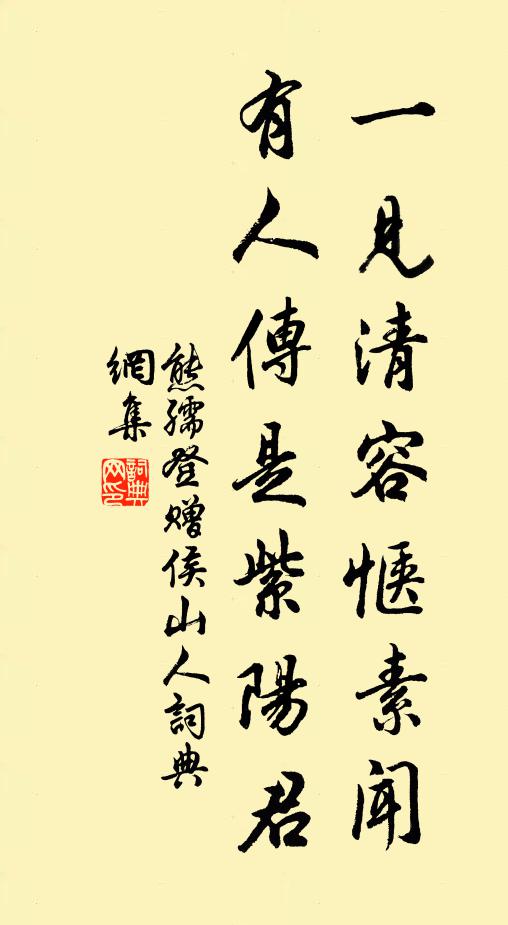 一見清容愜素聞
有人傳是紫陽君
熊孺登贈侯山人詞典
網集
詞典
网印